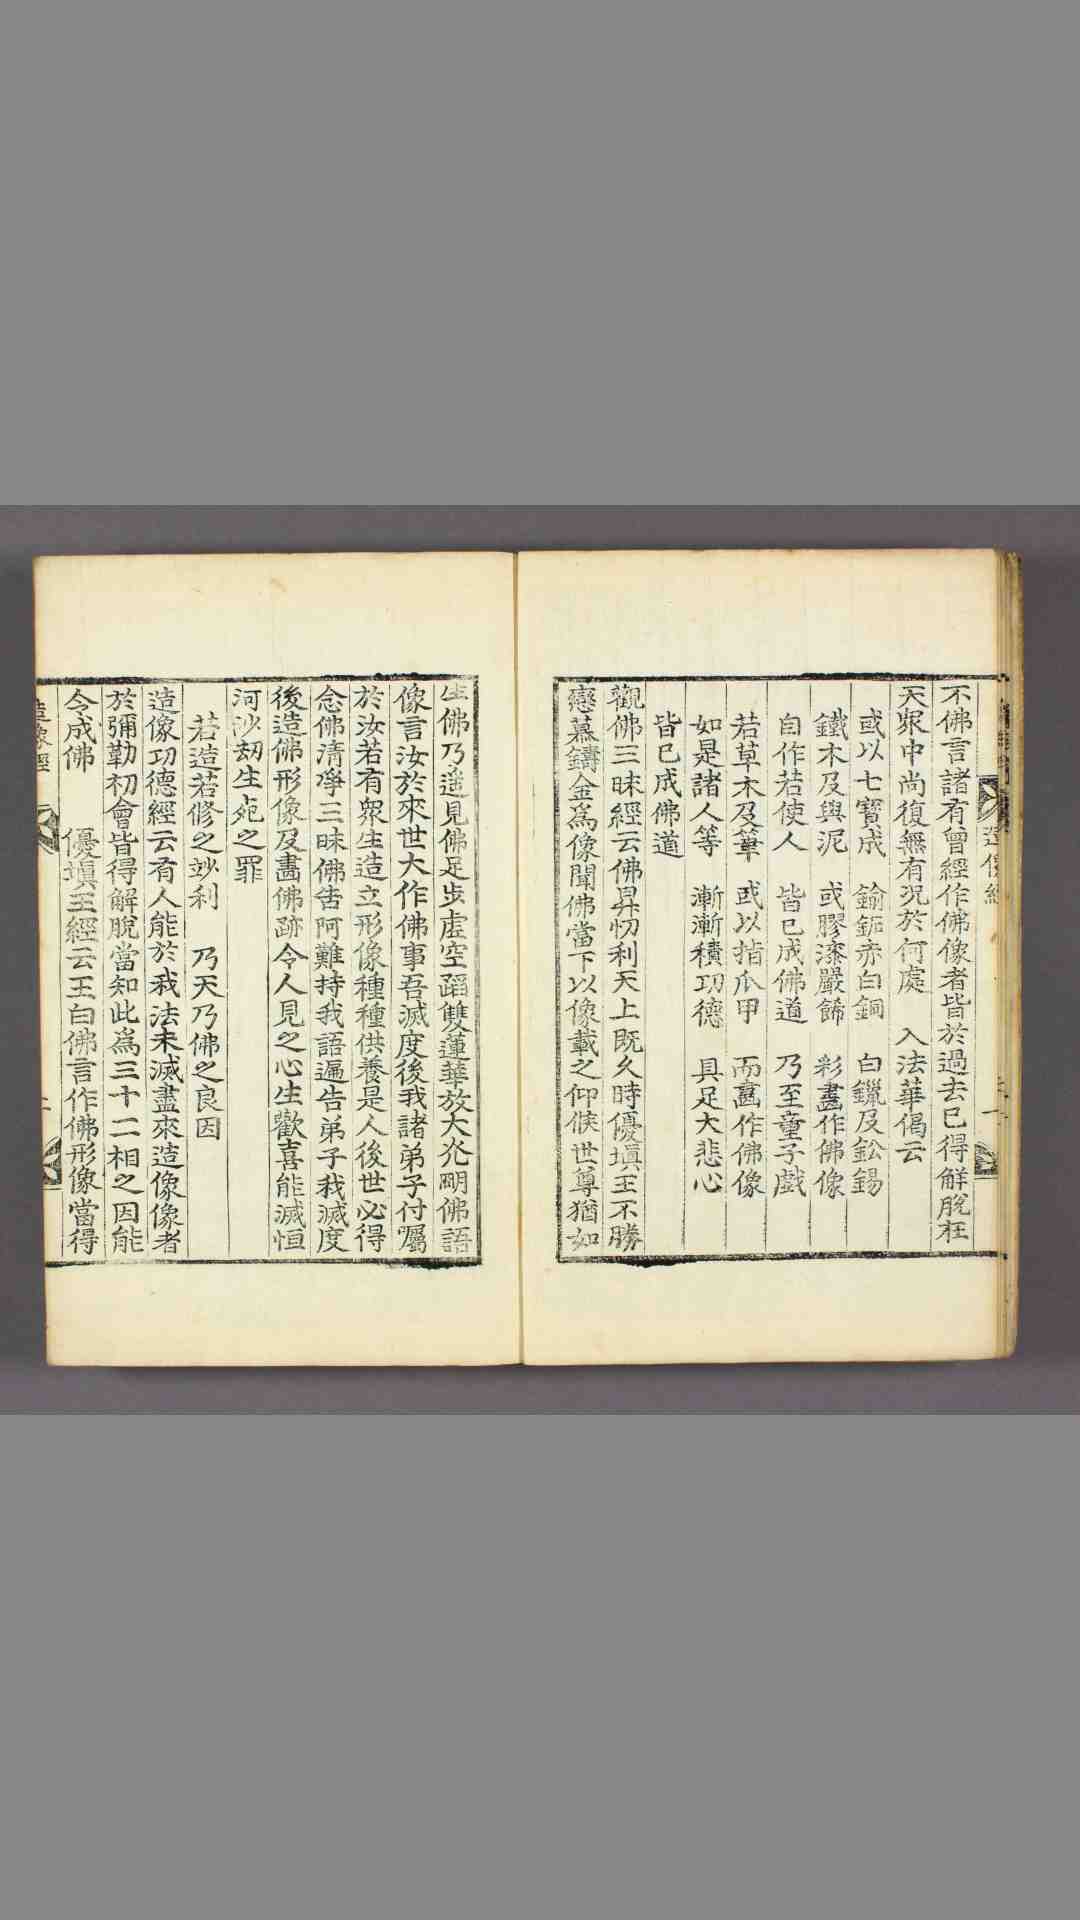 不佛言諸有曾經作佛像者皆於過去已得觧脫在
天衆中尚復無有况於何處 入法華偈云
或以七寶成 鍮鉐赤白銅 白鑞及鈆錫
鐵木及與泥 或膠漆嚴餙 彩畫作佛像
自作若使人 皆已成佛道 乃至童子戲
若草木及葦 或以指爪甲 而畫作佛像
如是諸人等 漸漸積功德 具足大悲心
皆已成佛道
觀佛三昧經云佛昇忉利天上既久時優塡王不勝
戀慕鑄金爲像聞佛當下以像載之仰候世尊猶如
生佛乃遥見佛足步虛空蹈雙蓮華放大光明佛語
像言汝於來世大作佛事吾滅度後我諸弟子付囑
於汝若有衆生造立形像種種供養是人後世必得
念佛清淨三昧佛告阿難持我語遍告弟子我滅度
後造佛形像及畵佛跡令人見之心生歡喜能滅恒
河沙劫生死之罪
若造若修之妙利 乃天乃佛之良因
造像功德經云有人能於我法未滅盡來造像像者
於彌勒初會皆得解脫當知此爲三十二相之因能
令成佛 優塡王經云王白佛言作佛形像當得
造像經
二